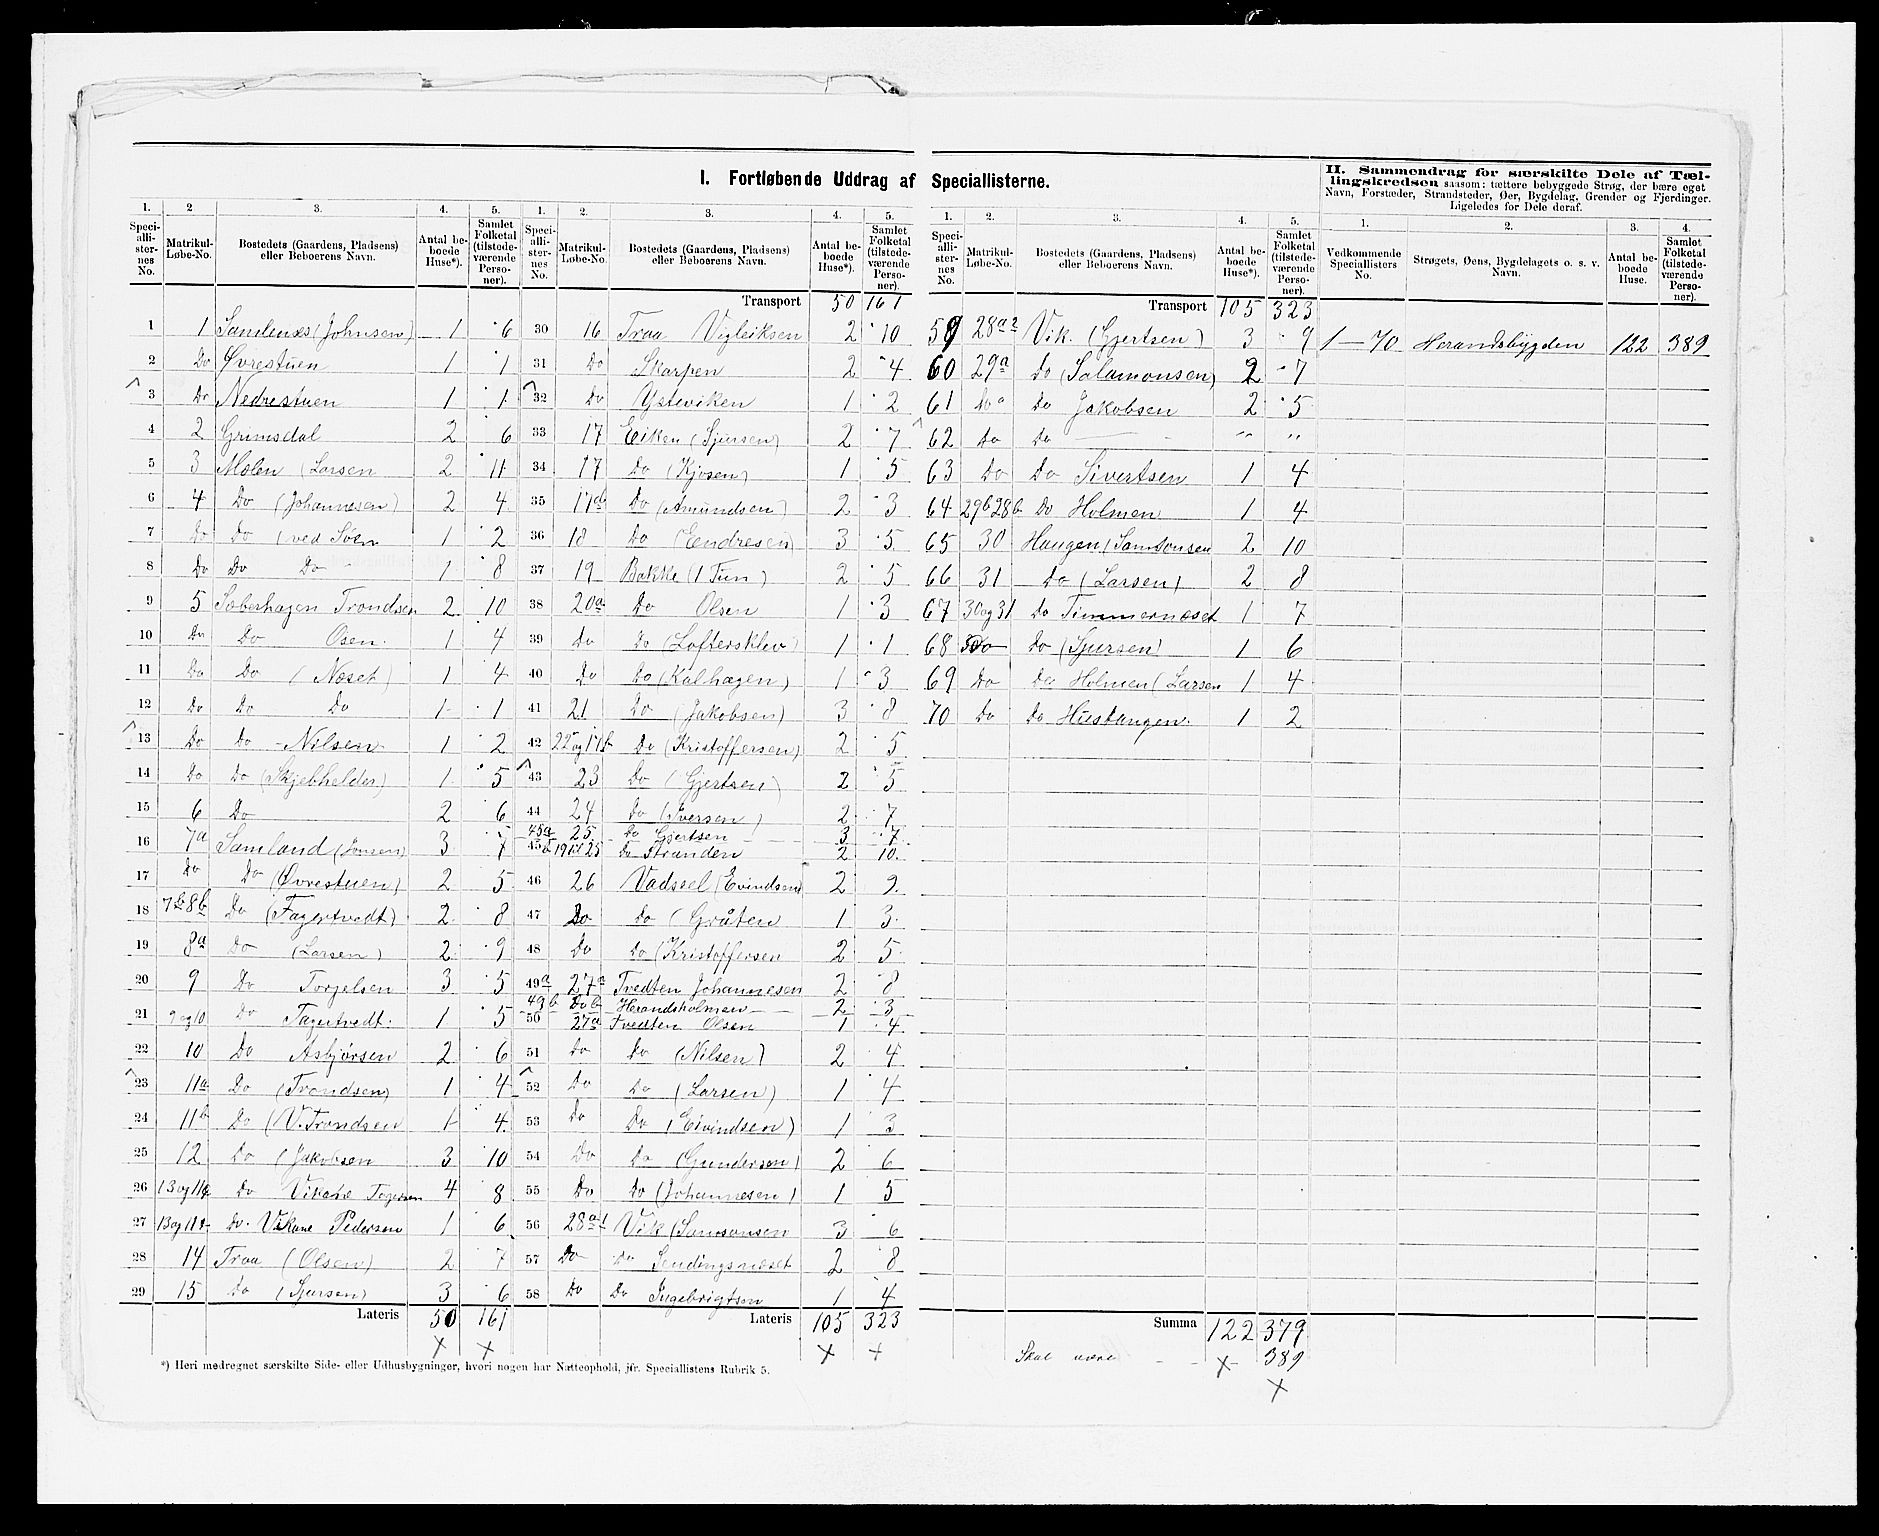 I. Fortløbende Uddrag af Speciallisterne.
1. 2 3. 4. 5.
Specialli-sternes No. Matrikul-Løbe-No. Bostedets (Gaardens, Pladsens) eller Beboerens Navn. Antal beboede Huse*). Samlet Folketal (tilstedeværende Personer).
1 1 Samlenæs (Johnsen) 1 6
2 Do Øvrestuen 1 1
3 Do Nedrestuen 1 1
4 2 Grimsdal 2 6
5 3 Molen (Larsen 2 11
6 4 Do (Johannesen) 2 4
7 Do Do (ved Søen 1 2
8 Do Do Do 1 8
9 5 Soberhagen Trondsen 2 10
10 Do Do Osen 1 4
11 Do Do (Næset) 1 4
12 Do Do Do 1 1
13 Do Do Nilsen 1 2
14 Do Do (Skjebhelder) 1 5
15 6 Do 2 6
16 7a Samland (Jonsen) 3 7
17 Do Do (Øvrestuen) 2 5
18 7b 8b Do (Fagertvedt) 2 8
19 8a Do (Larsen) 2 9
20 9 Do Torjelsen 3 5
21 9 og 10 Do Fagertvedt 1 5
22 10 Do Asbjørsen 2 6
23 11a Do (Trondsen) 1 4
24 11b Do (V. Trondsen 1 4
25 12 Do (Jakobsen 3 10
26 13 og 11a Do Vikene 4 8
27 13 og 11 Do. Vikane Pedersen 1 6
28 14 Traa (Olsen) 2 7
29 15 Do (Sjursen) 3 6
Lateris 50 161
1. 2. 3. 4. 5.
Specialli-sternes No. Matrikul-Løbe-No. Bostedets (Gaardens, Pladsens) eller Beboerens Navn. Antal beboede Huse*). Samlet Folketal (tilstedeværende Personer).
Transport 50 161
30 16 Traa Vigleiksen 2 10
31 Do Skarpen 2 4
32 Do Ysteviken 1 2
33 17 Eiken (Sjursen) 2 7
34 17 Do (Kjosen) 1 5
35 17a Do (Amundsen) 2 3
36 18 Do (Endresen) 3 5
37 19 Bakke (1 Tun) 2 5
38 20a Do Olsen 1 3
39 Do Do (Loftersklev) 1 1
40 Do Do (Kalhagen) 1 3
41 21 Do (Jakobsen) 3 8
42 22 og 17b Do (Kristoffersen) 2 5
43 23 Do (Gjertsen) 2 5
44 24 Do (Iversen) 2 7
45a 25 Do Gjertsen 3 7
45b 19 til 25 Do Stranden 2 10
46 26 Vadssel (Evindsen) 2 9
47 Do Do (Gråten 1 3
48 Do Do (Kristoffersen 2 5
49a 27a Tvedten Johannesen 2 8
49b Do b Herandsholmen 2 3
50 27a Tvedten Olsen 1 4
51 Do Do (Nilsen) 2 4
52 Do Do (Larsen) 1 4
53 Do Do (Eivindsen) 1 3
54 Do Do (Gundersen) 2 6
55 Do Do (Johannesen) 1 5
56 28a1 Vik (Samsonsen 3 6
57 Do Do Sendingsnæset 2 8
58 Do Do Ingebrigtsen 1 4
Lateris 105 323
1. 2. 3. 4. 5.
Specialli-sternes No. Matrikul-Løbe-No. Bostedets (Gaardens, Pladsens) eller Beboerens Navn. Antal beboede Huse*). Samlet Folketal (tilstedeværende Personer).
Transport 105 323
59 28a2 Vik. (Gjertsen) 3 9
60 29a Do (Salamonsen) 2 7
61 Do a Do Jakobsen 2 5
62 Do Do — " "
63 Do Do Sivertsen 1 4
64 29b 28b Do Holmen 1 4
65 30 Haugen (Samsonsen 2 10
66 31 Do (Larsen) 2 8
67 30 og 31 Do Timmernæset 1 7
68 Do Do (Sjursen) 1 6
69 Do Do Holmen (Larsen 1 4
70 Do Do Hustangen 1 2
Summa 122 379
Skal være 389
II. Sammendrag for særskilte Dele af Tællingskredsen saasom: tættere bebyggede Strøg, der bære eget Navn, Forstæder, Strandsteder, Øer, Bygdelag, Grender og Fjerdinger. Ligeledes for Dele deraf.
1. 2. 3. 4.
Vedkommende Speciallisters No. Strøgets, Øens, Bygdelagets o. s. v. Navn. Antal beboede Huse. Samlet Folketal (tilstedeværende Personer).
1—70 Herandsbygden 122 389
*) Heri medregnet særskilte Side- eller Udhusbygninger, hvori nogen har Natteophold, jfr. Speciallistens Rubrik 5.